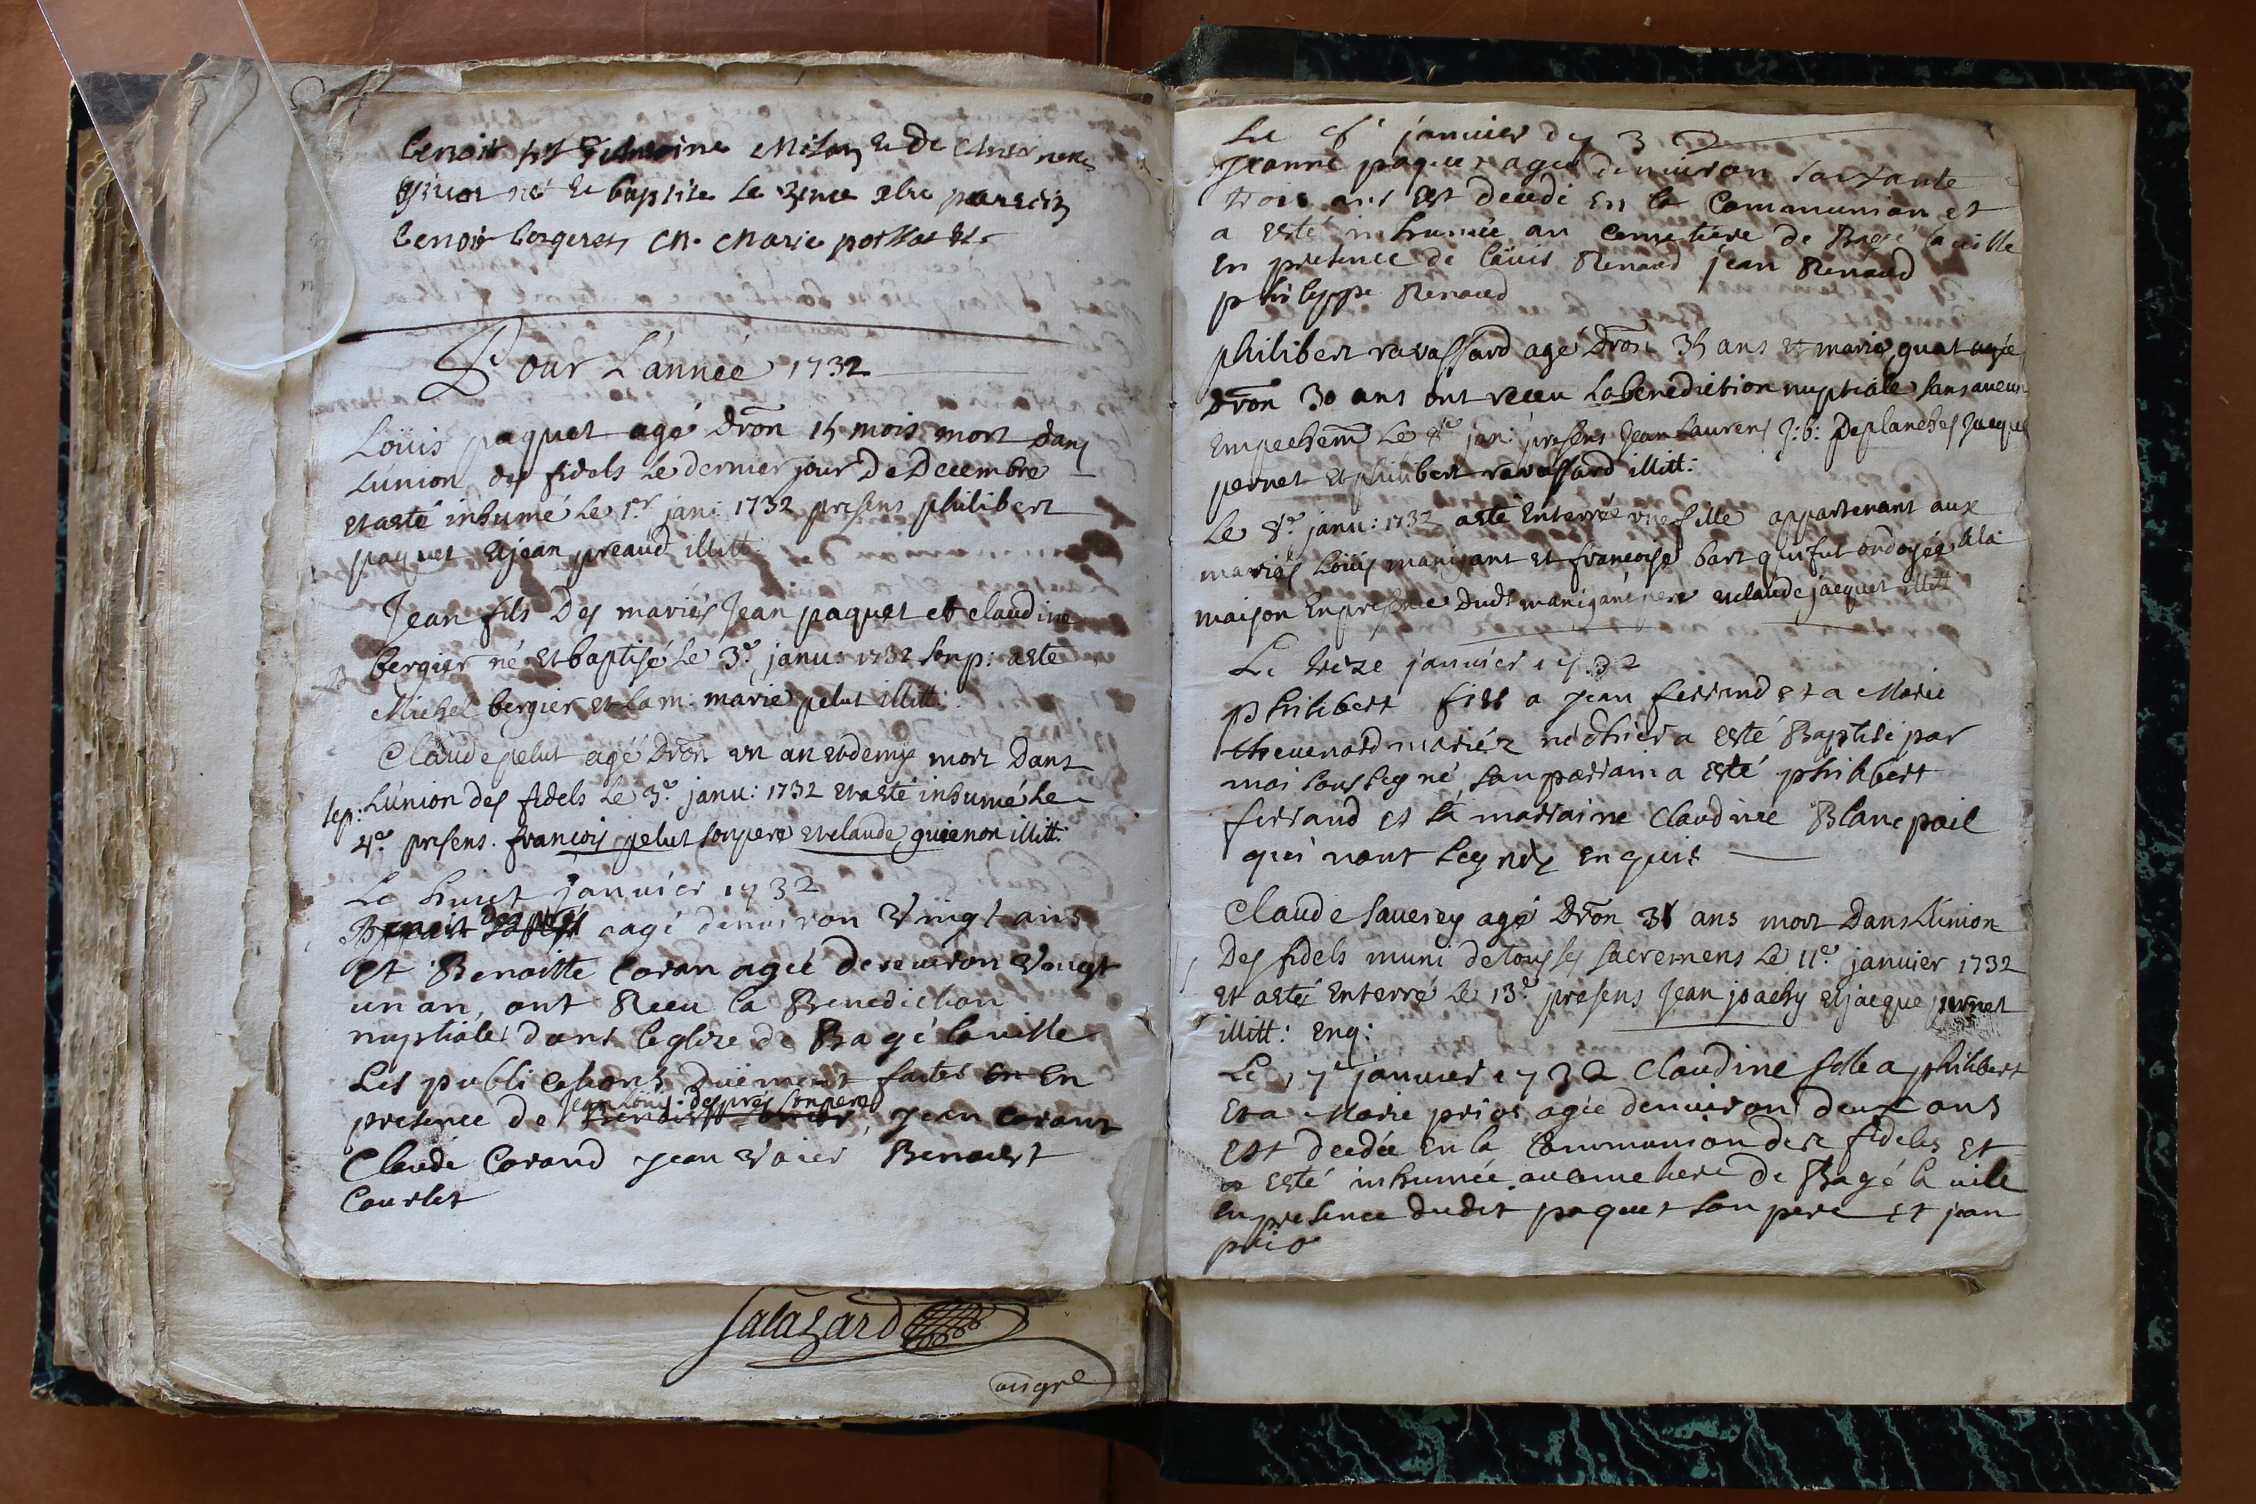 Benoit fils
né et baptisé le parrein
benoit m. Marie
Pour L'année 1732
Loüis paquet agé dron 15 mois mort dans
L'union des fidels le dernier jour De Decembre
et asté inhumé Le 1er janu: 1732 presens philibert
paquet et jean preaud illitt:
Jean fils Des mariés Jean paquet et claudine
bergier né et baptisé le 3e janu: 1732 son p: asté
Michel bergier et la m: marie pelut illitt:
Claude pelut agé Dron un an et demy mort Dans
sep: L'union des fidels Le 3e janu: 1732 et asté inhumé Le
4e presens. françois pelut son pere et claude guienon illitt:
Le huict janvier 1732
Benoit agé denviron vingt ans
et Benoitte Coran ageé denenviron Vingt
un an, ont Receu la Benediction
nuptiale dans leglize de Bagé la ville
Les publications Duëment faites en En
presence de Jean Loüis despres son pere Jean Corant
Claude Corand Jean Benoist
Courlet
Salazard
Le janvier 1732
Jeanne paquet ageé denviron soixante
trois ans est decedé en la Communion et
a esté inhumée au cemetiere de Bagé la ville
en presence de Loüis Renaud jean Renaud
philippe Renaud
philibert ravassard agé Dron 35 ans et marie guat agée
Dron 30 ans ont receu La benediction nuptiale sans aucun
Empechem Le 8e jan: presens Jean Laurens J: b: Deplanches Jacque
pernet et philibert ravassard illitt:
Le 8e janu: 1732 asté Enterrée une fille appartenant aux
mariés Loüis manigant et françoise bart qui fut ondoyée àla
maison En presence Dudt manigant pere et claude jacquet illitt
Le treze janvier 1732
philibert fils a jean ferrand et a Marie
thevenard mariéz né d'hier a esté Baptisé par
moi soussigné, son parrain a esté philibert
ferrand et sa marraine Claudine Blancpoil
qui n'ont signéz enquis
Claude saverey agé Dron 31 ans mort Dans L'union
Des fidels muni de tous les sacremens Le 11e janvier 1732
et asté Enterré Le 13e presens Jean joachy et jacque pernet
illitt: enq:
Le 17e janvier 1732 Claudine fille a philibert
et a Marie prior agée denviron deux ans
est decedée en la Communion dez fideles et
a esté inhumée au cemetiere de Bagé la ville
en presence dudit paquet son pere et jean
prio